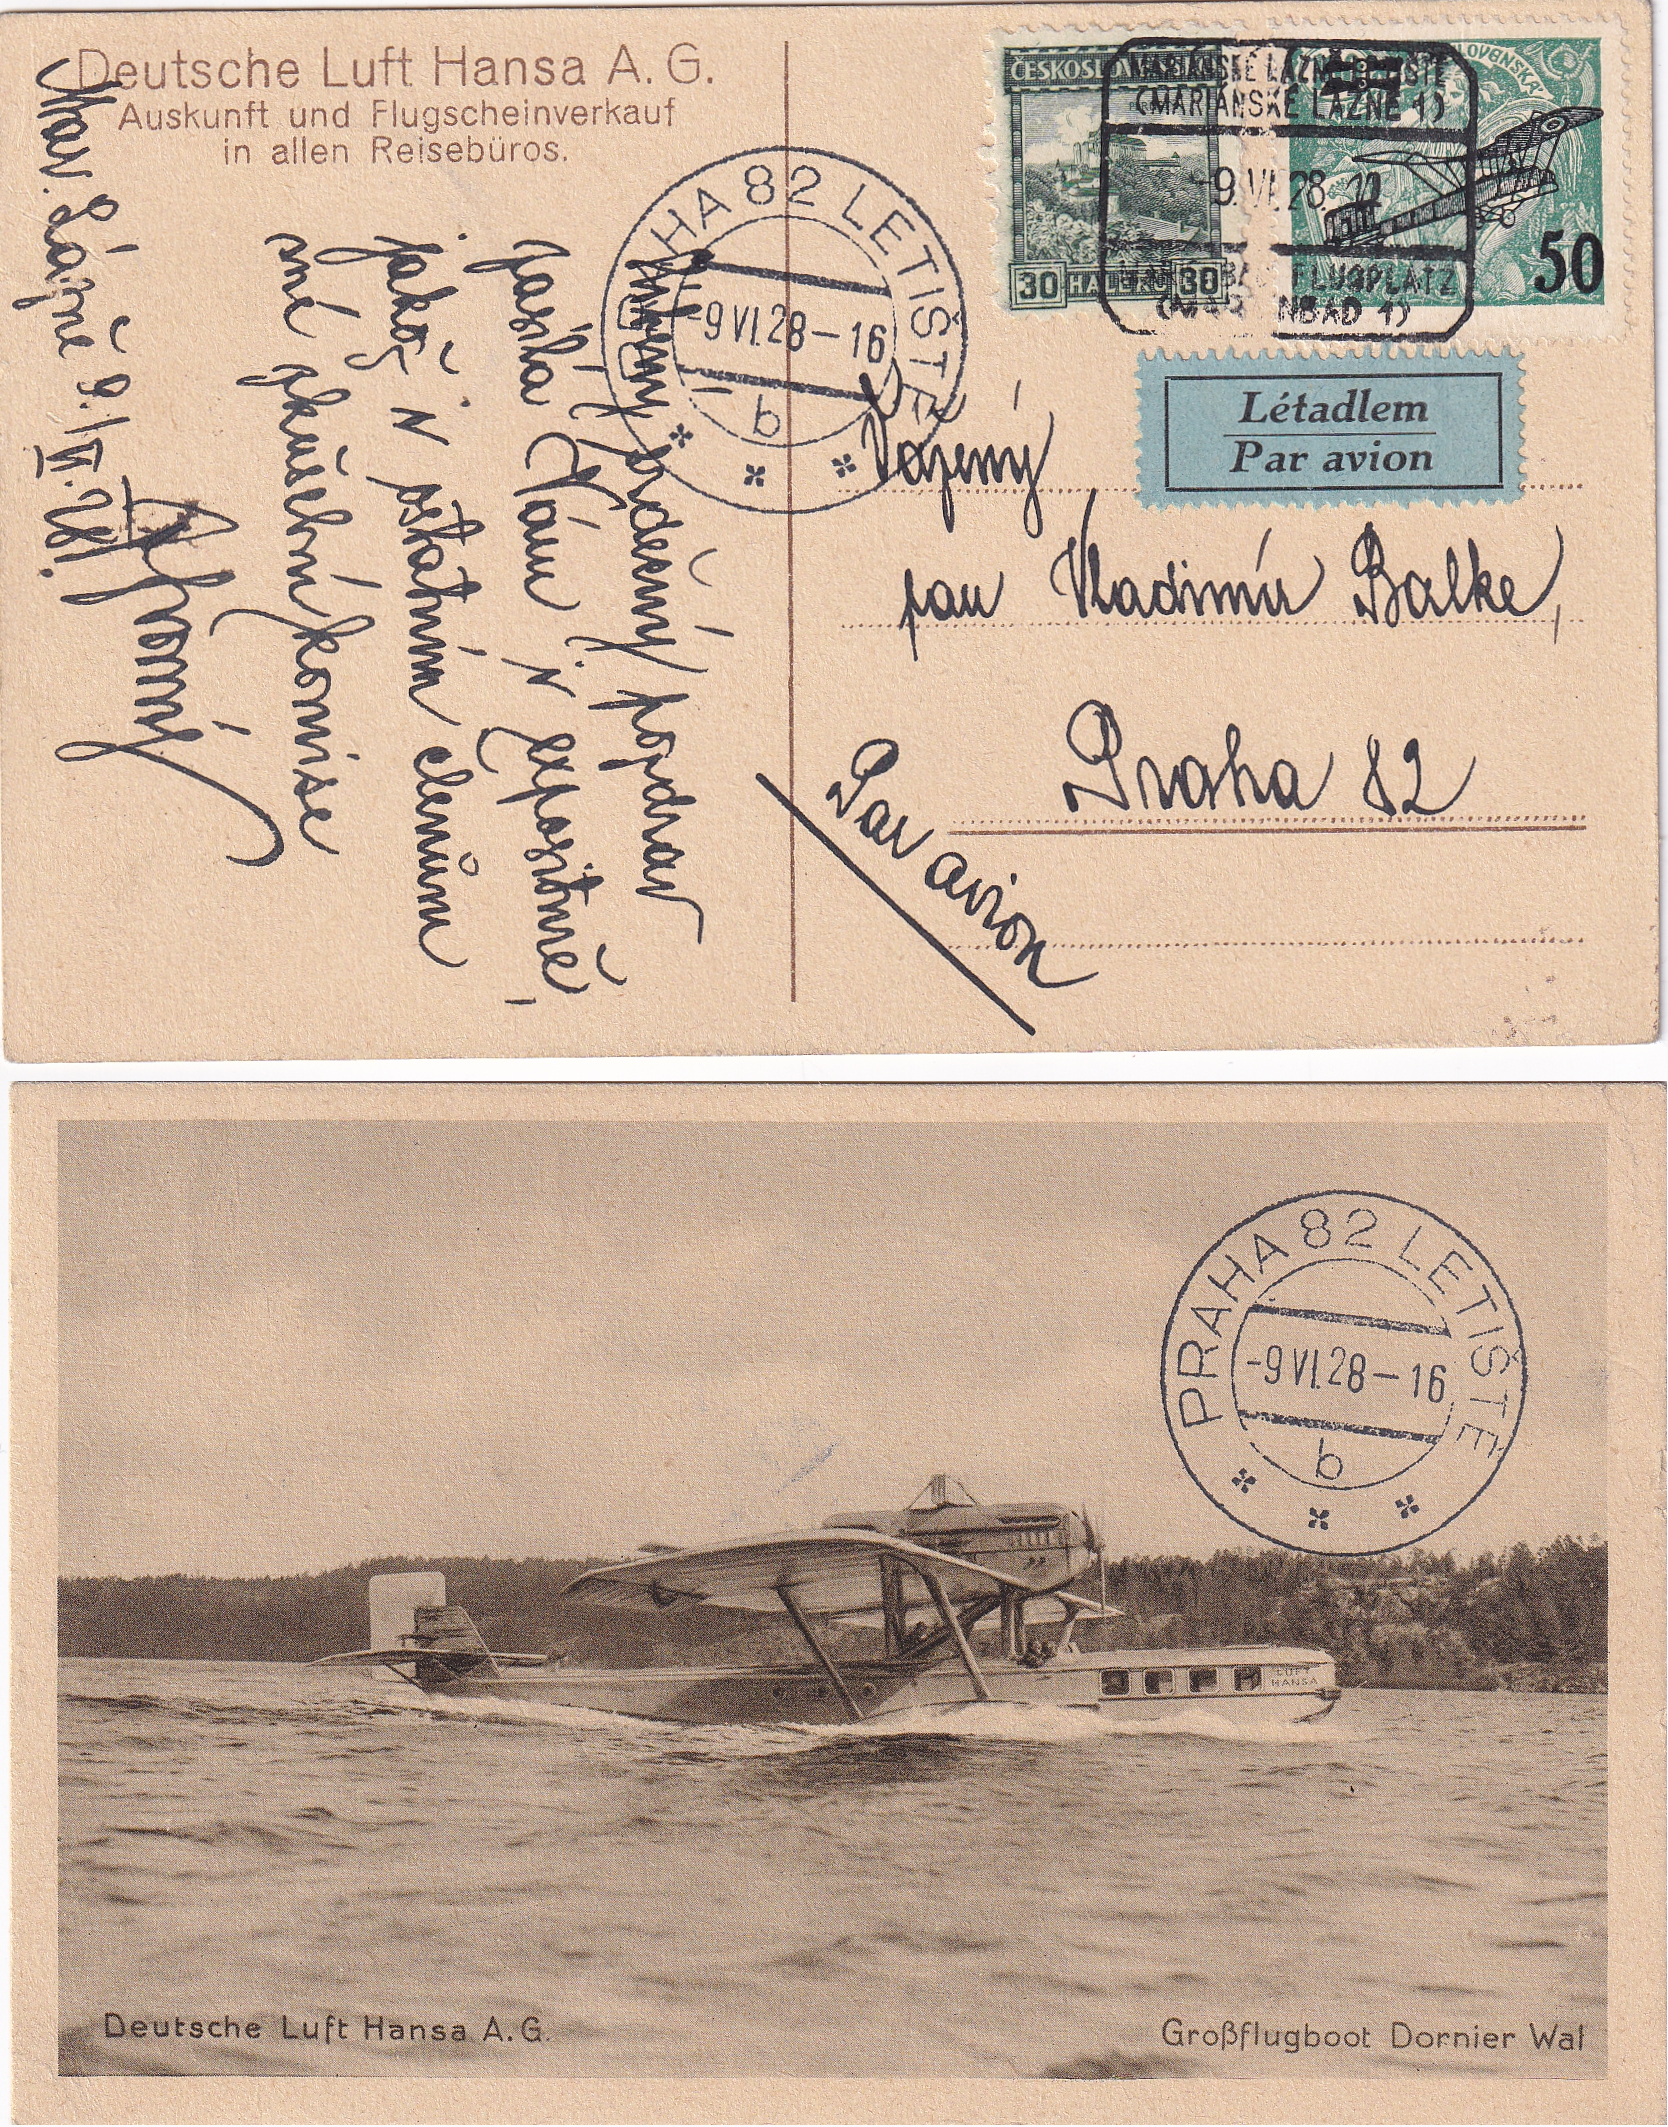 Deutsche Luft Hansa A. G.
Auskunft und Flugscheinverkauf
in allen Reisebüros.
ČESKOSLOVENSKÁ
30 HALÉŘŮ 30
SLOVENSKÁ
50
MARIÁNSKÉ LÁZNĚ LETIŠTĚ
(MARIÁNSKÉ LÁZNĚ 1)
-9.VI.28.
FLUGPLATZ
(MARIENBAD 1)
PRAHA 82 LETIŠTĚ
-9 VI.28-16
b
Létadlem
Par avion
Vážený
pan Vladimír Balke,
Praha 82
Par avion
srdečný pozdrav
Vám i expositně,
jakož i ostatním členům
zkušební komise
Mar. Lázně 9./VI. 28.
PRAHA 82 LETIŠTĚ
-9 VI.28-16
b
LUFT
HANSA
Deutsche Luft Hansa A.G.
Großflugboot Dornier Wal